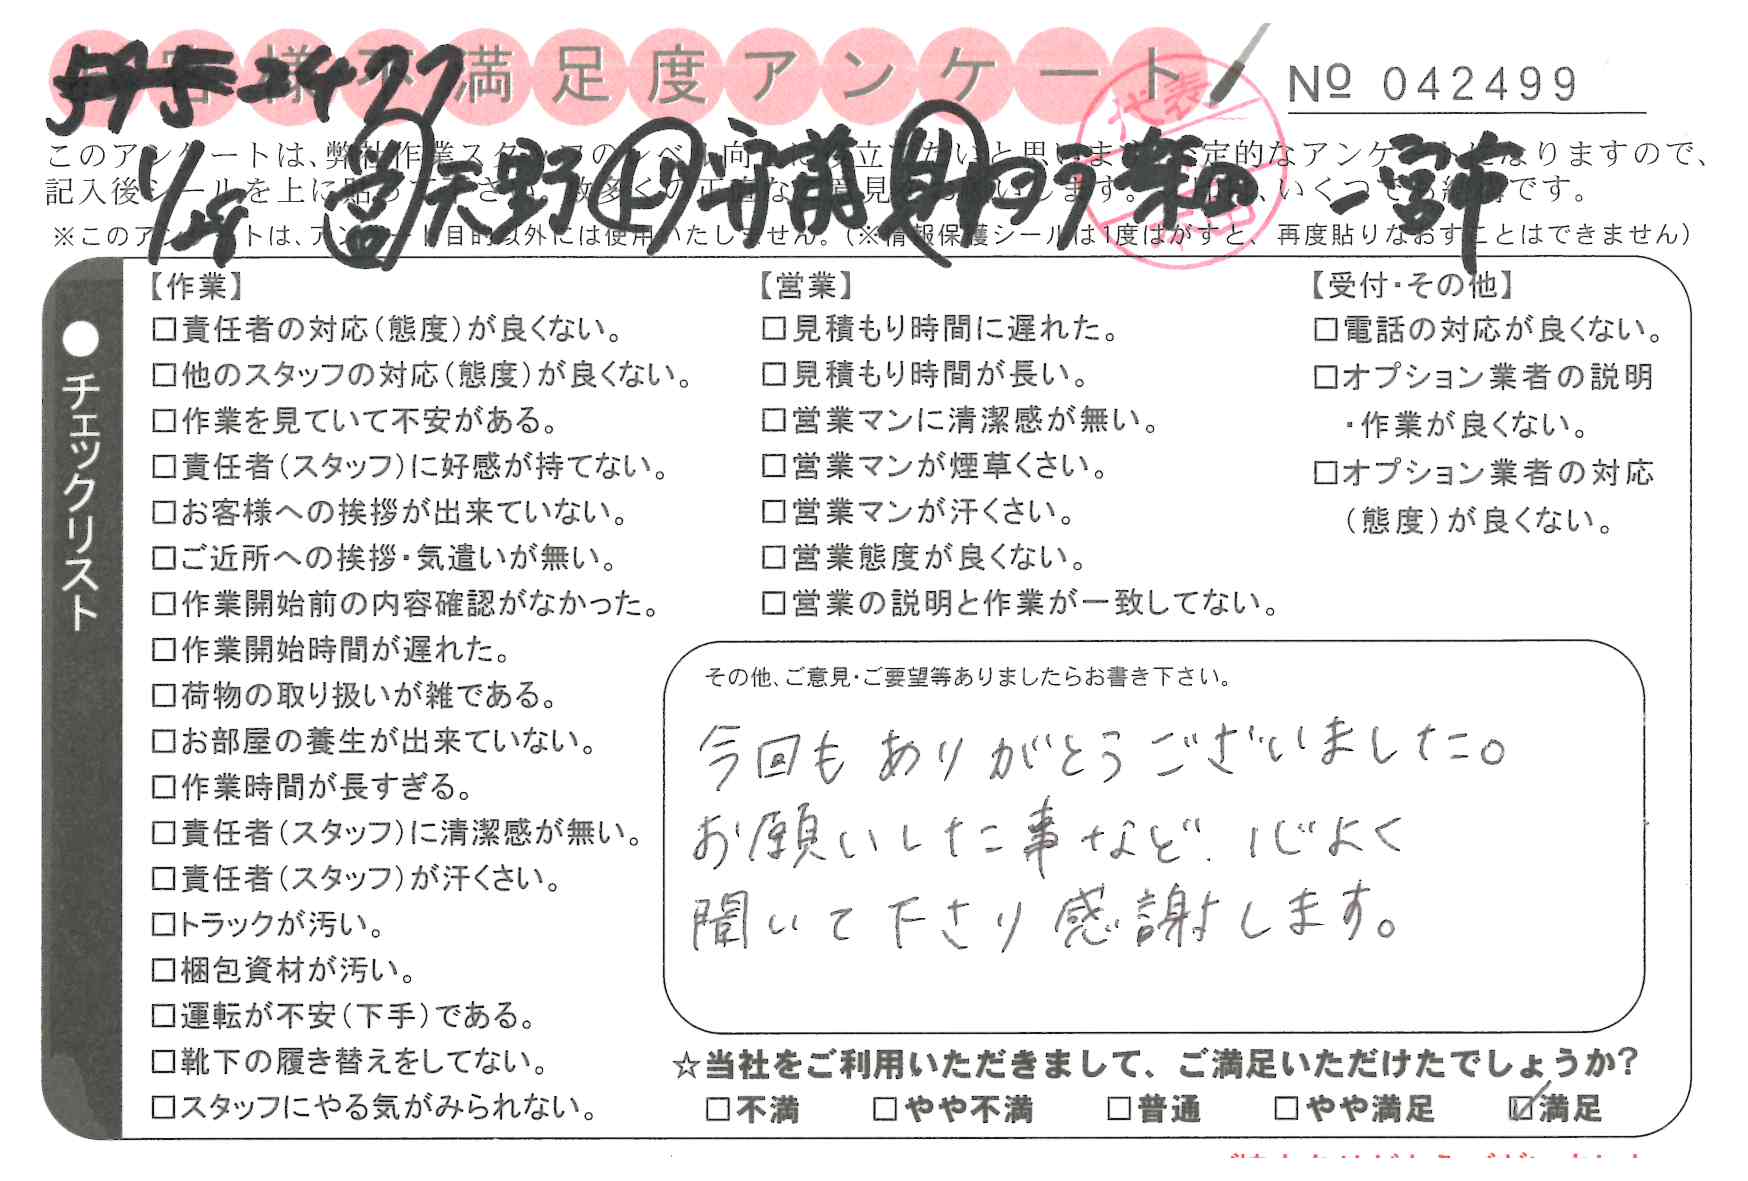 お客様不満足度アンケート
№ 042499
2427
1/28 営 天野 前 見 一宮市
このアンケートは、弊社作業スタッフのレベル向上に役立てたいと思います。定的なアンケートになりますので、
記入後シールを上に貼って下さい。数多くの正直な意見をお願いします。いくつでも結構です。
※このアンケートは、アンケート目的以外には使用いたしません。(※情報保護シールは1度はがすと、再度貼りなおすことはできません)
●チェックリスト
【作業】
□責任者の対応(態度)が良くない。
□他のスタッフの対応(態度)が良くない。
□作業を見ていて不安がある。
□責任者(スタッフ)に好感が持てない。
□お客様への挨拶が出来ていない。
□ご近所への挨拶・気遣いが無い。
□作業開始前の内容確認がなかった。
□作業開始時間が遅れた。
□荷物の取り扱いが雑である。
□お部屋の養生が出来ていない。
□作業時間が長すぎる。
□責任者(スタッフ)に清潔感が無い。
□責任者(スタッフ)が汗くさい。
□トラックが汚い。
□梱包資材が汚い。
□運転が不安(下手)である。
□靴下の履き替えをしてない。
□スタッフにやる気がみられない。
【営業】
□見積もり時間に遅れた。
□見積もり時間が長い。
□営業マンに清潔感が無い。
□営業マンが煙草くさい。
□営業マンが汗くさい。
□営業態度が良くない。
□営業の説明と作業が一致してない。
【受付・その他】
□電話の対応が良くない。
□オプション業者の説明
・作業が良くない。
□オプション業者の対応
(態度)が良くない。
その他、ご意見・ご要望等ありましたらお書き下さい。
今回もありがとうございました。
お願いした事など、心よく
聞いて下さり感謝します。
☆当社をご利用いただきまして、ご満足いただけたでしょうか?
□不満 □やや不満 □普通 □やや満足 ☑満足